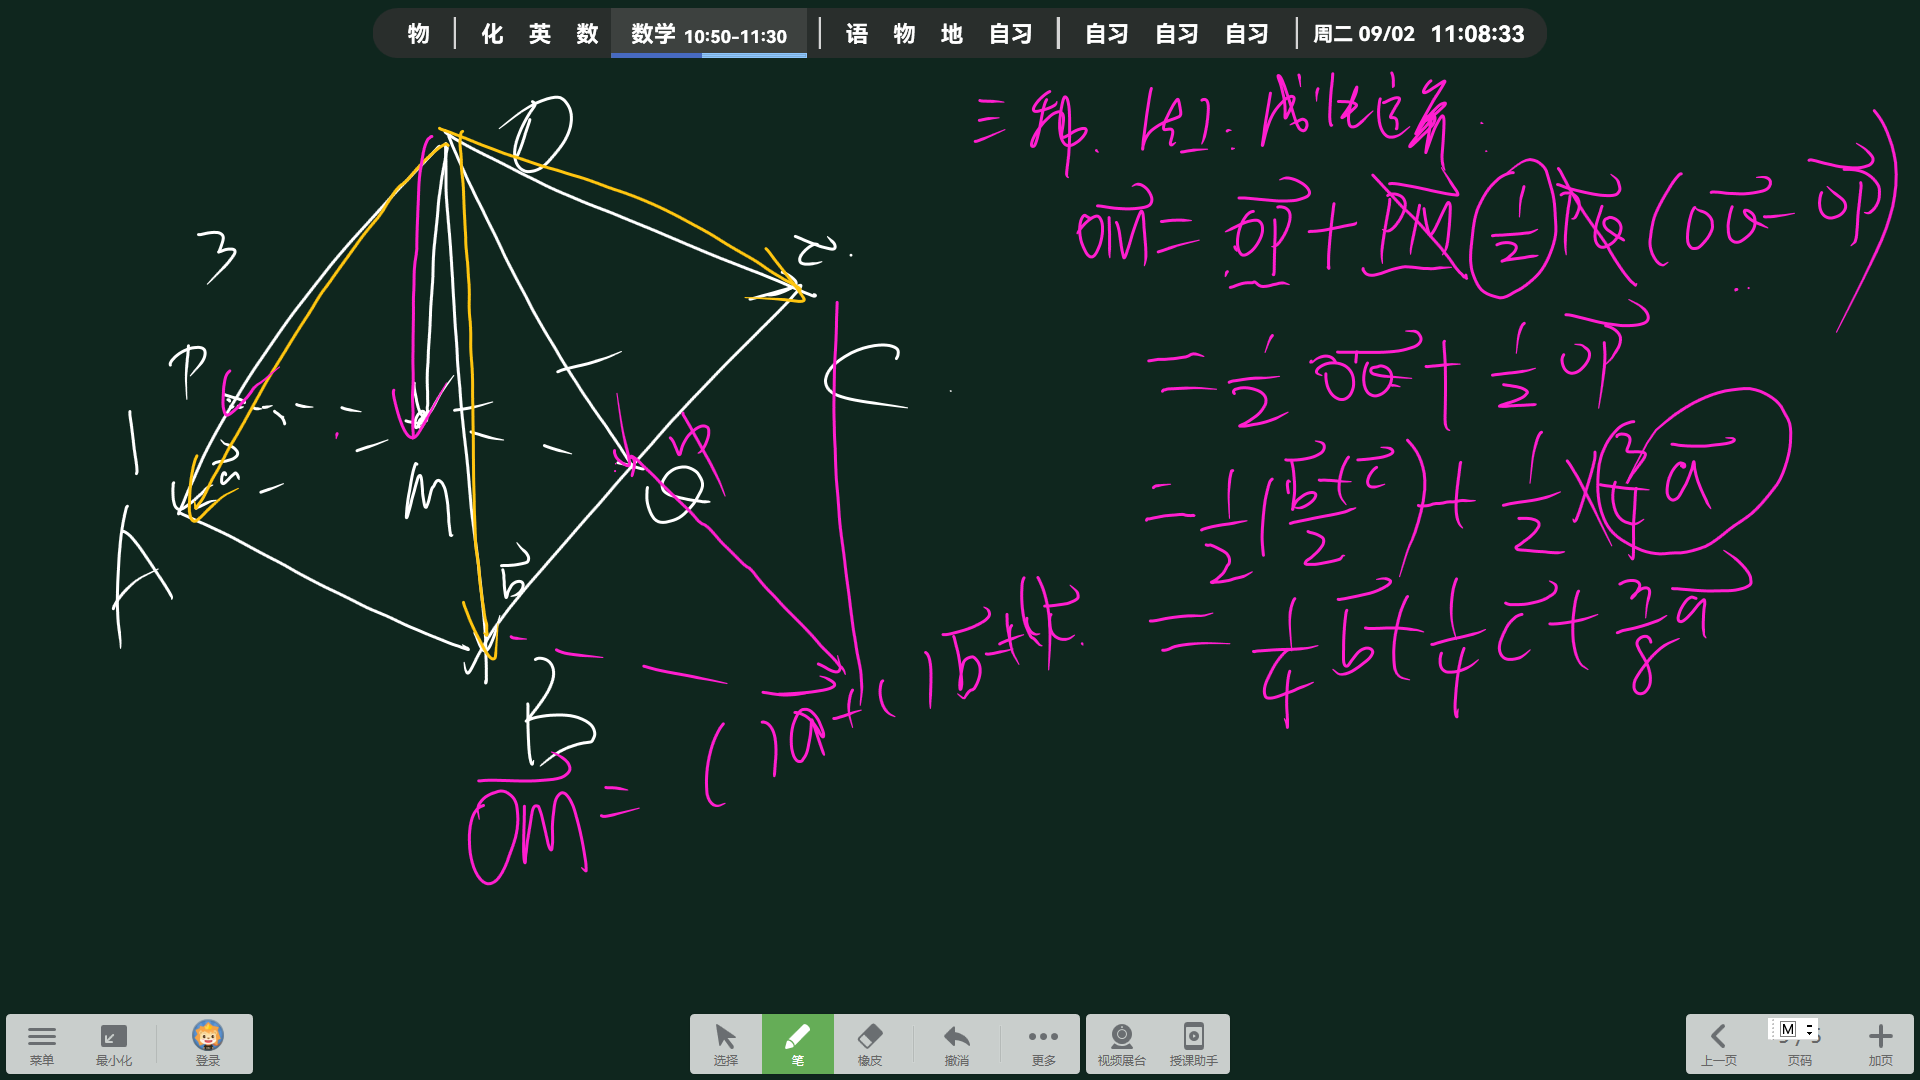 物 | 化 英 数 数学 10:50-11:30 | 语 物 地 自习 | 自习 自习 自习 | 周二 09/02 11:08:33
O
3
c
P
1
a
M
Q
C
A
b
B
OM = OP + PM 1/2 PQ (OQ - OP)
= 1/2 OQ + 1/2 OP
= 1/2 (b + c / 2) + 1/2 × 3/4 a
= 1/4 b + 1/4 c + 3/8 a
OM = ( ) a + ( ) b + ( ) c
菜单 最小化 登录 选择 笔 橡皮 撤消 更多 视频展台 授课助手 上一页 M 页码 加页